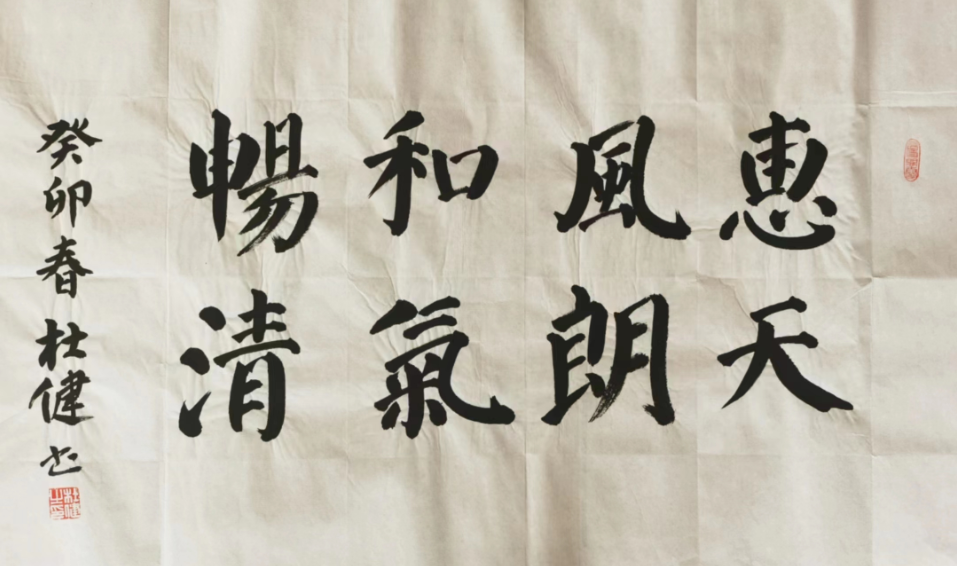 惠天
風朗
和氣
暢清
癸卯春杜健书